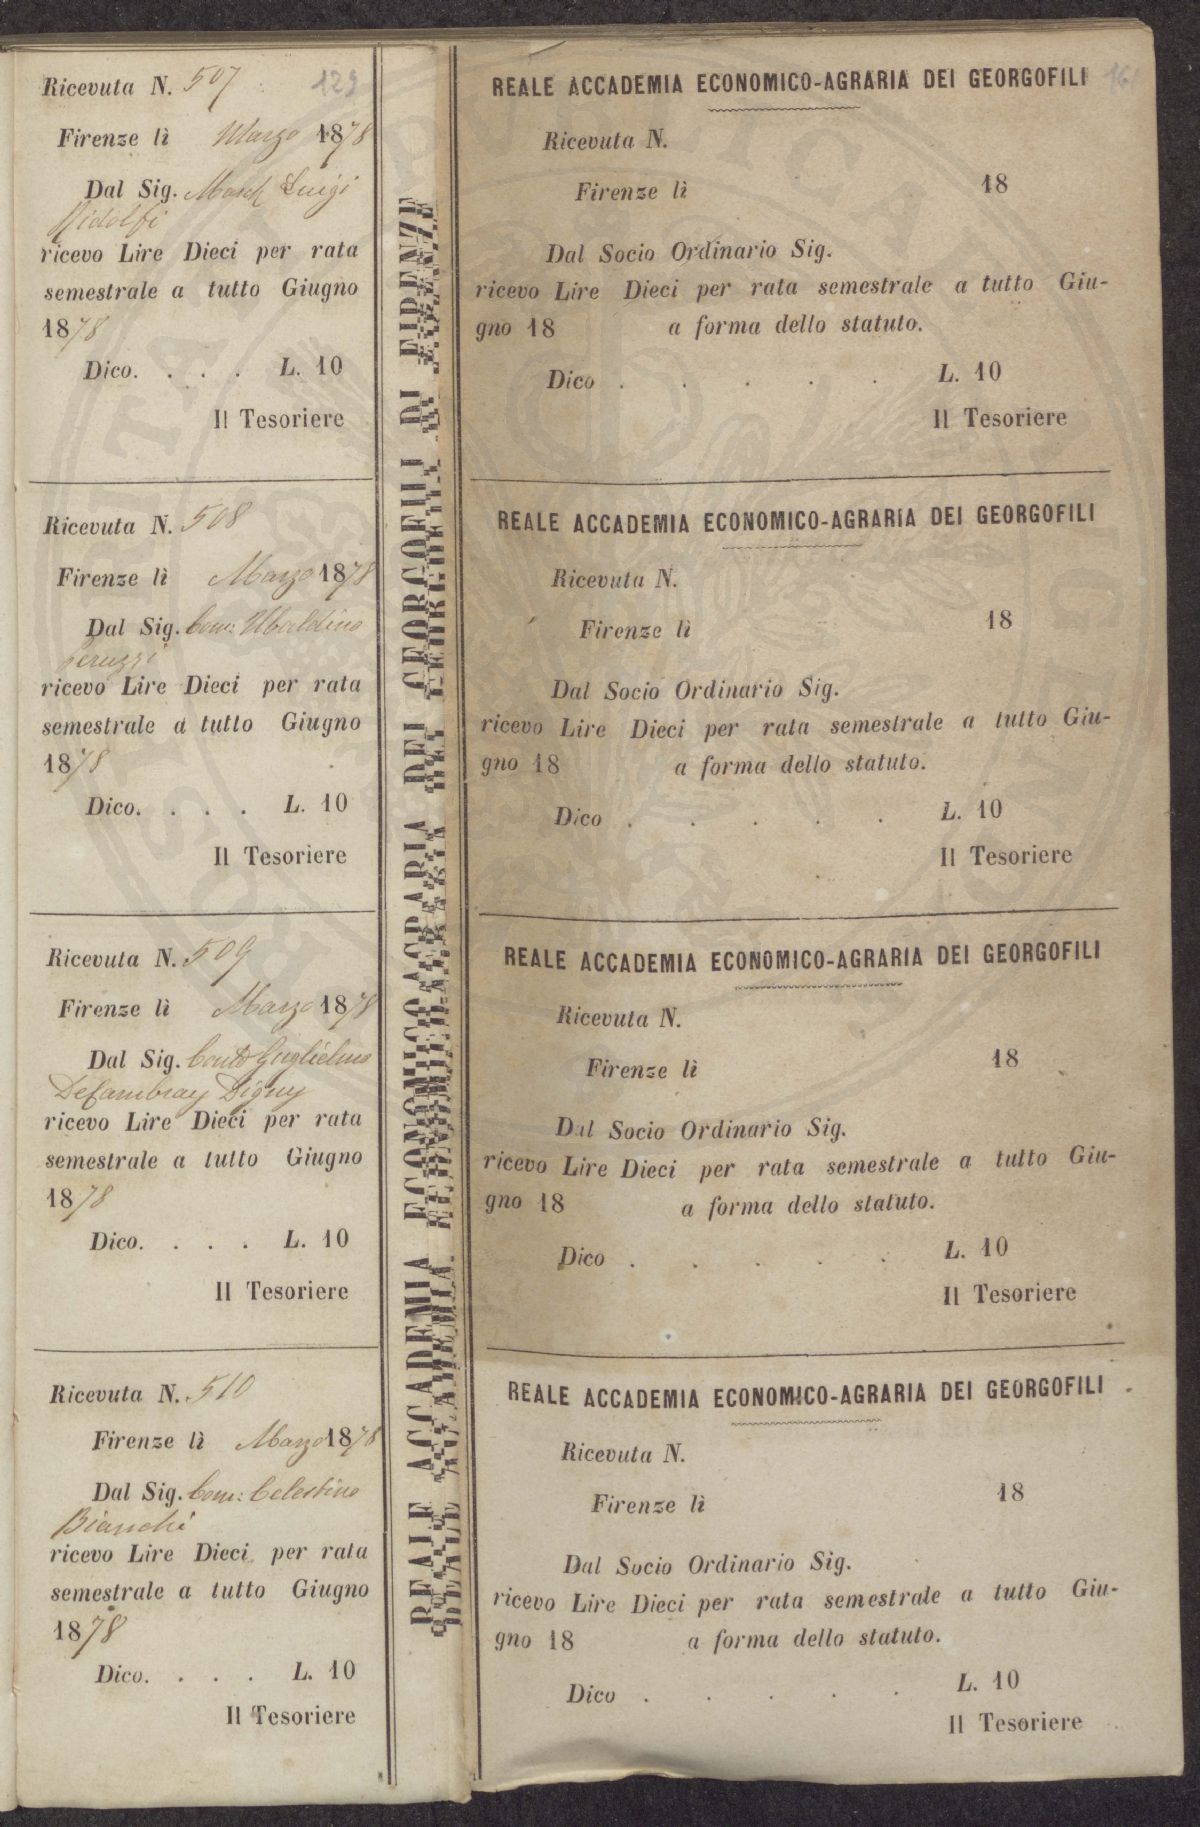 Ricevuta N. 507
129
Firenze lì Marzo 1878
Dal Sig. March Luigi
Ridolfi
ricevo Lire Dieci per rata
semestrale a tutto Giugno
1878
Dico. . . . L. 10
Il Tesoriere
Ricevuta N. 508
Firenze lì Marzo 1878
Dal Sig. Com: Ubaldino
Peruzzi
ricevo Lire Dieci per rata
semestrale a tutto Giugno
1878
Dico. . . . L. 10
Il Tesoriere
Ricevuta N. 509
Firenze lì Marzo 1878
Dal Sig. Conte Guglielmo
DeCambray Digny
ricevo Lire Dieci per rata
semestrale a tutto Giugno
1878
Dico. . . . L. 10
Il Tesoriere
Ricevuta N. 510
Firenze lì Marzo 1878
Dal Sig. Com: Celestino
Bianchi
ricevo Lire Dieci per rata
semestrale a tutto Giugno
1878
Dico. . . . L. 10
Il Tesoriere
REALE ACCADEMIA ECONOMICO-AGRARIA DEI GEORGOFILI DI FIRENZE
REALE ACCADEMIA ECONOMICO-AGRARIA DEI GEORGOFILI
Ricevuta N.
Firenze lì 18
Dal Socio Ordinario Sig.
ricevo Lire Dieci per rata semestrale a tutto Giu-
gno 18 a forma dello statuto.
Dico . . . . . L. 10
Il Tesoriere
REALE ACCADEMIA ECONOMICO-AGRARIA DEI GEORGOFILI
Ricevuta N.
Firenze lì 18
Dal Socio Ordinario Sig.
ricevo Lire Dieci per rata semestrale a tutto Giu-
gno 18 a forma dello statuto.
Dico . . . . . L. 10
Il Tesoriere
REALE ACCADEMIA ECONOMICO-AGRARIA DEI GEORGOFILI
Ricevuta N.
Firenze lì 18
Dal Socio Ordinario Sig.
ricevo Lire Dieci per rata semestrale a tutto Giu-
gno 18 a forma dello statuto.
Dico . . . . . L. 10
Il Tesoriere
REALE ACCADEMIA ECONOMICO-AGRARIA DEI GEORGOFILI
Ricevuta N.
Firenze lì 18
Dal Socio Ordinario Sig.
ricevo Lire Dieci per rata semestrale a tutto Giu-
gno 18 a forma dello statuto.
Dico . . . . . L. 10
Il Tesoriere